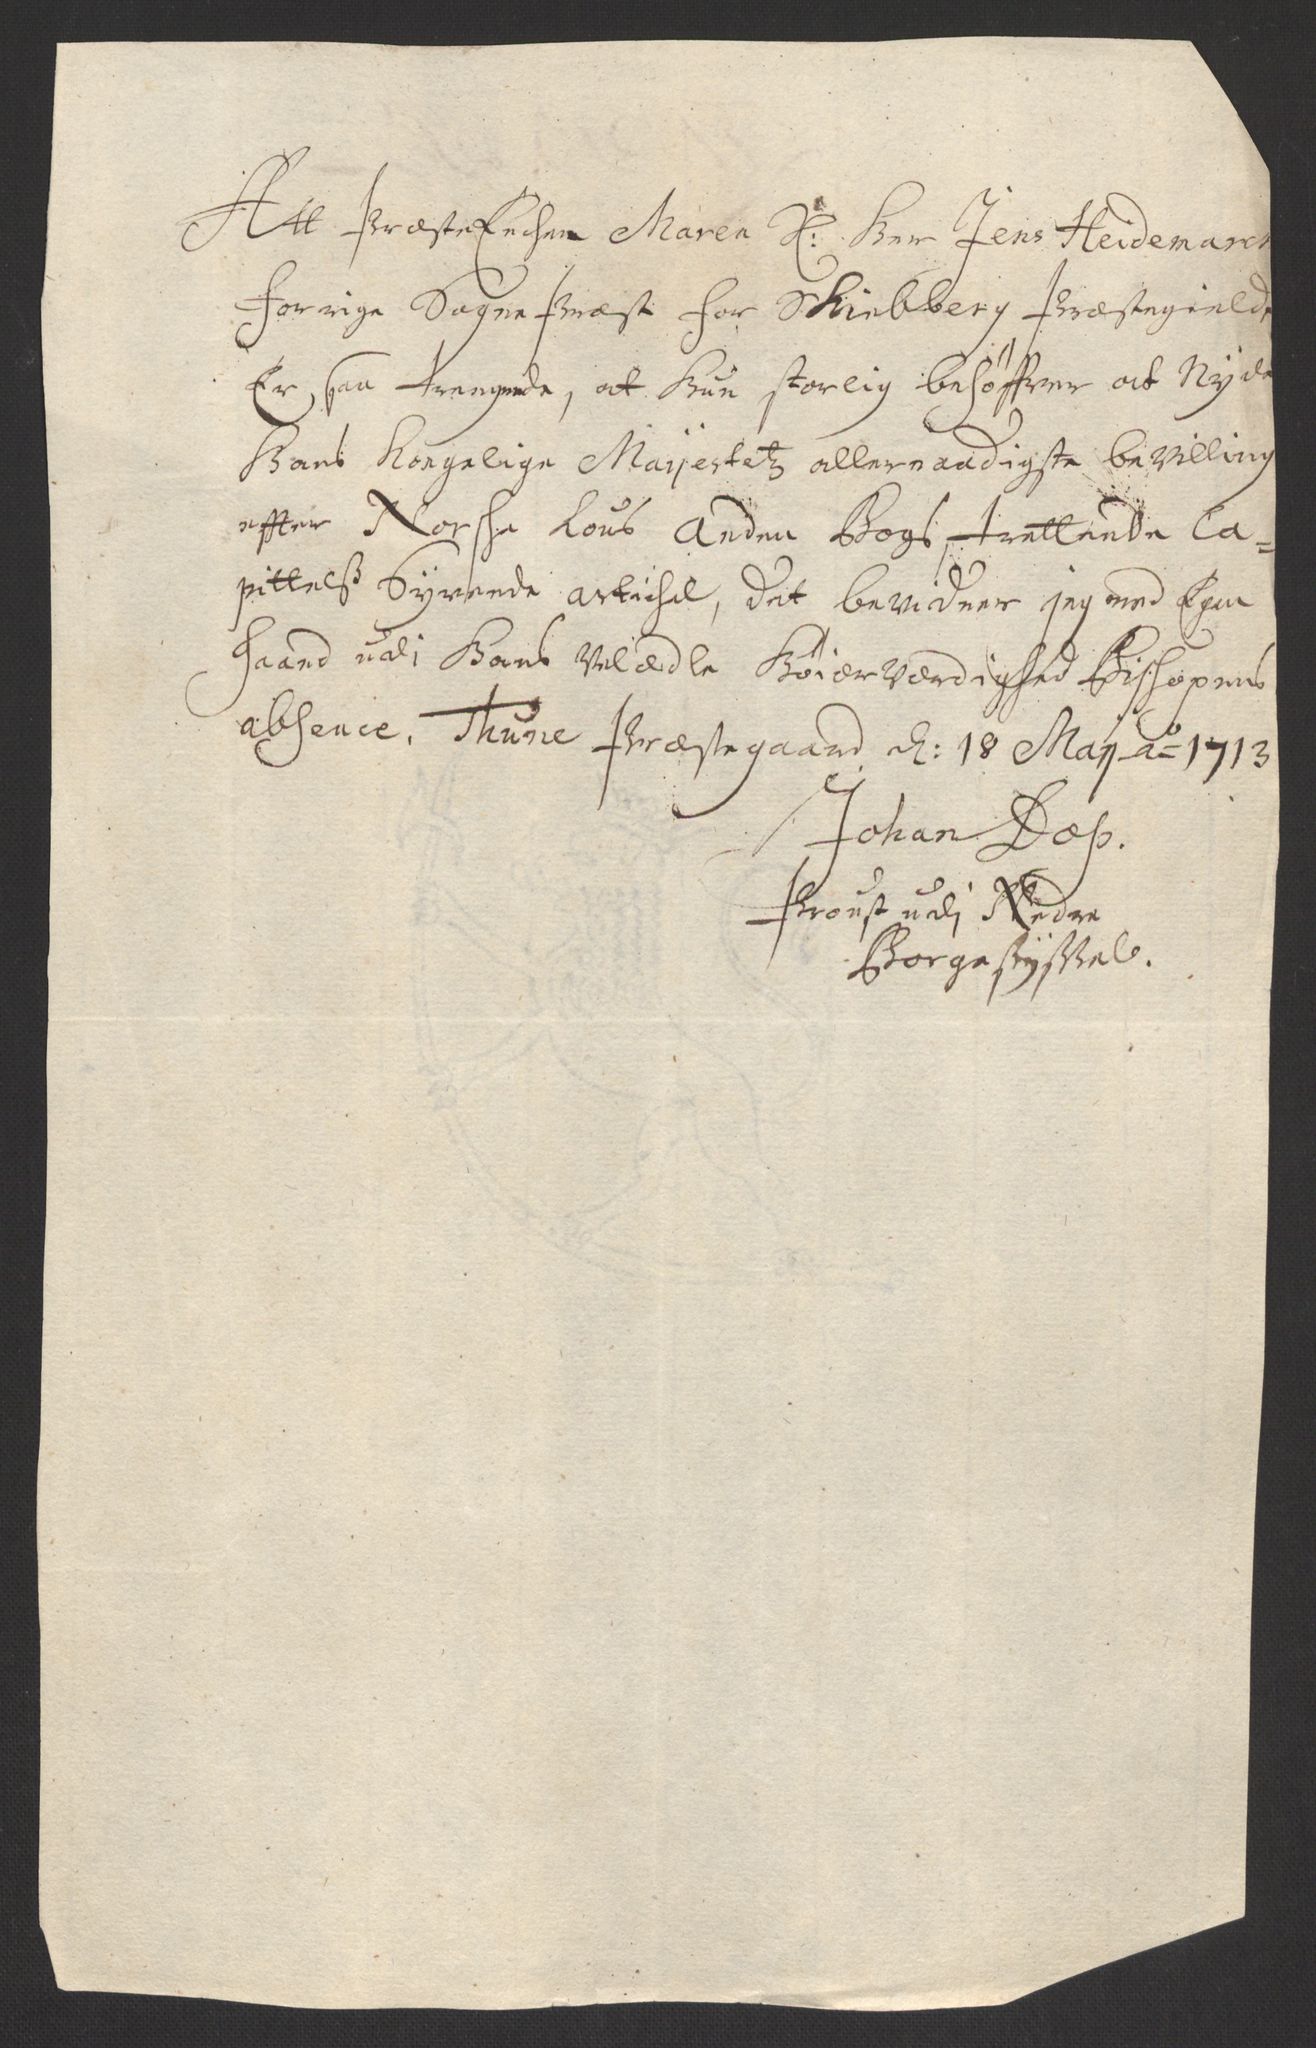 Att PræsteEncken Maren Sl: Her Jens Heidemarck
forrige SognePræst for Skiebberg Præstegields
Er saa trengende, at Hun storlig behøffver at Nyde
Hans Kongelige Mayjestetz allernaadigste bevilling
effter Norske Lous Anden Bogs trettende Ca=
pittelß Syvende artichel, det bevidner jeg med Egen
haand udi Hans Velædle HøiærVærdighed Bischopens
absence. Thune Præstegaard d: 18 Maij Aº 1713
Johan Dop.
Proust udi Nedre
Borgesyssel.